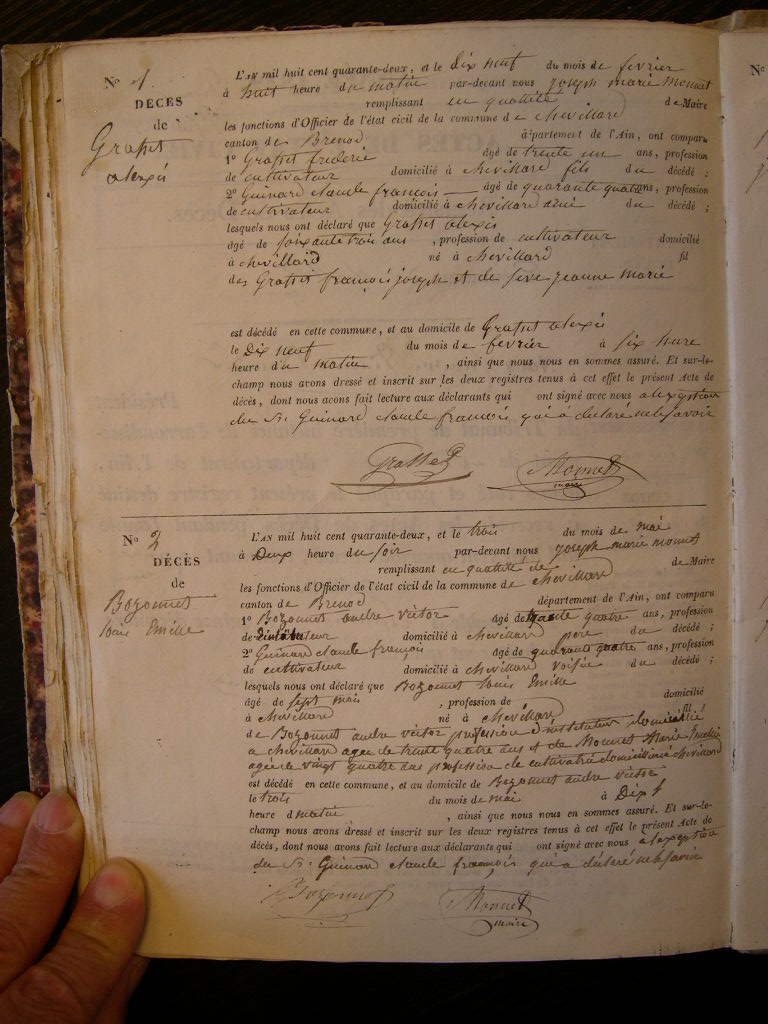 N° 1
DÉCÈS
de
Grasset
alexis
L'AN mil huit cent quarante-deux, et le dix neuf du mois de fevrier
à huit heure du matin par-devant nous joseph marie monnet
remplissant en quallité de Maire
les fonctions d'Officier de l'état civil de la commune de chevillard
canton de Brenod département de l'Ain, ont comparu
1° Grasset frederic âgé de trente un ans, profession
de cultivateur domicilié à chevillard fils du décédé ;
2° Guinard claude francois âgé de quarante quatre ans, profession
de cultivateur domicilié à chevillard ami du décédé ;
lesquels nous ont déclaré que Grasset alexis
âgé de soixante trois ans , profession de cultivateur domicilié
à chevillard né à chevillard fil
des Grasset françois joseph et de feve jeanne marie
est décédé en cette commune, et au domicile de Grasset alexis
le Dix neuf du mois de fevrier à six hure
heure du matin , ainsi que nous nous en sommes assuré. Et sur-le-
champ nous avons dressé et inscrit sur les deux registres tenus à cet effet le présent Acte de
décès, dont nous avons fait lecture aux déclarants qui ont signé avec nous
du Sr. Guinard claude francois qui a déclaré ne le savoir
Grasset Monnet
maire
N° 2
DÉCÈS
de
Bozonnet
louis Emilie
L'AN mil huit cent quarante-deux, et le trois du mois de mai
à Deux heure du soir par-devant nous joseph marie monnet
remplissant en quallité de de Maire
les fonctions d'Officier de l'état civil de la commune de chevillard
canton de Brenod département de l'Ain, ont comparu
1° Bozonnet andre victor âgé de trante quatre ans, profession
de domicilié à chevillard pere du décédé ;
2° Guinard claude françois âgé de quarante quatre ans, profession
de cultivateur domicilié à chevillard voisin du décédé ;
lesquels nous ont déclaré que Bozonnet louis Emilie
âgé de sept mois , profession de domicilié
à chevillard né à chevillard fil
de Bozonnet andre victor profession d'instituteur domicillié
a chevillard agee de trente quatre ans et de Monnet Marie
agée de vingt quatre ans profession de cultivatrice domicilliée chevillard
est décédé en cette commune, et au domicile de Bozonnet andre victor
le trois du mois de mai à Dix
heure d matin , ainsi que nous nous en sommes assuré. Et sur-le-
champ nous avons dressé et inscrit sur les deux registres tenus à cet effet le présent Acte de
décès, dont nous avons fait lecture aux déclarants qui ont signé avec nous
du Sr. Guinard claude françois qui a déclaré ne le savoir
Bozonnet Monnet
maire
N°